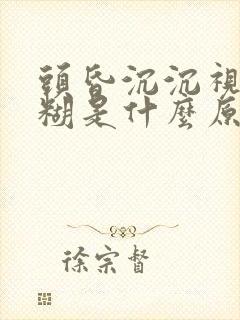 頭昏沉沉視
糊是什麼原
徐宗督